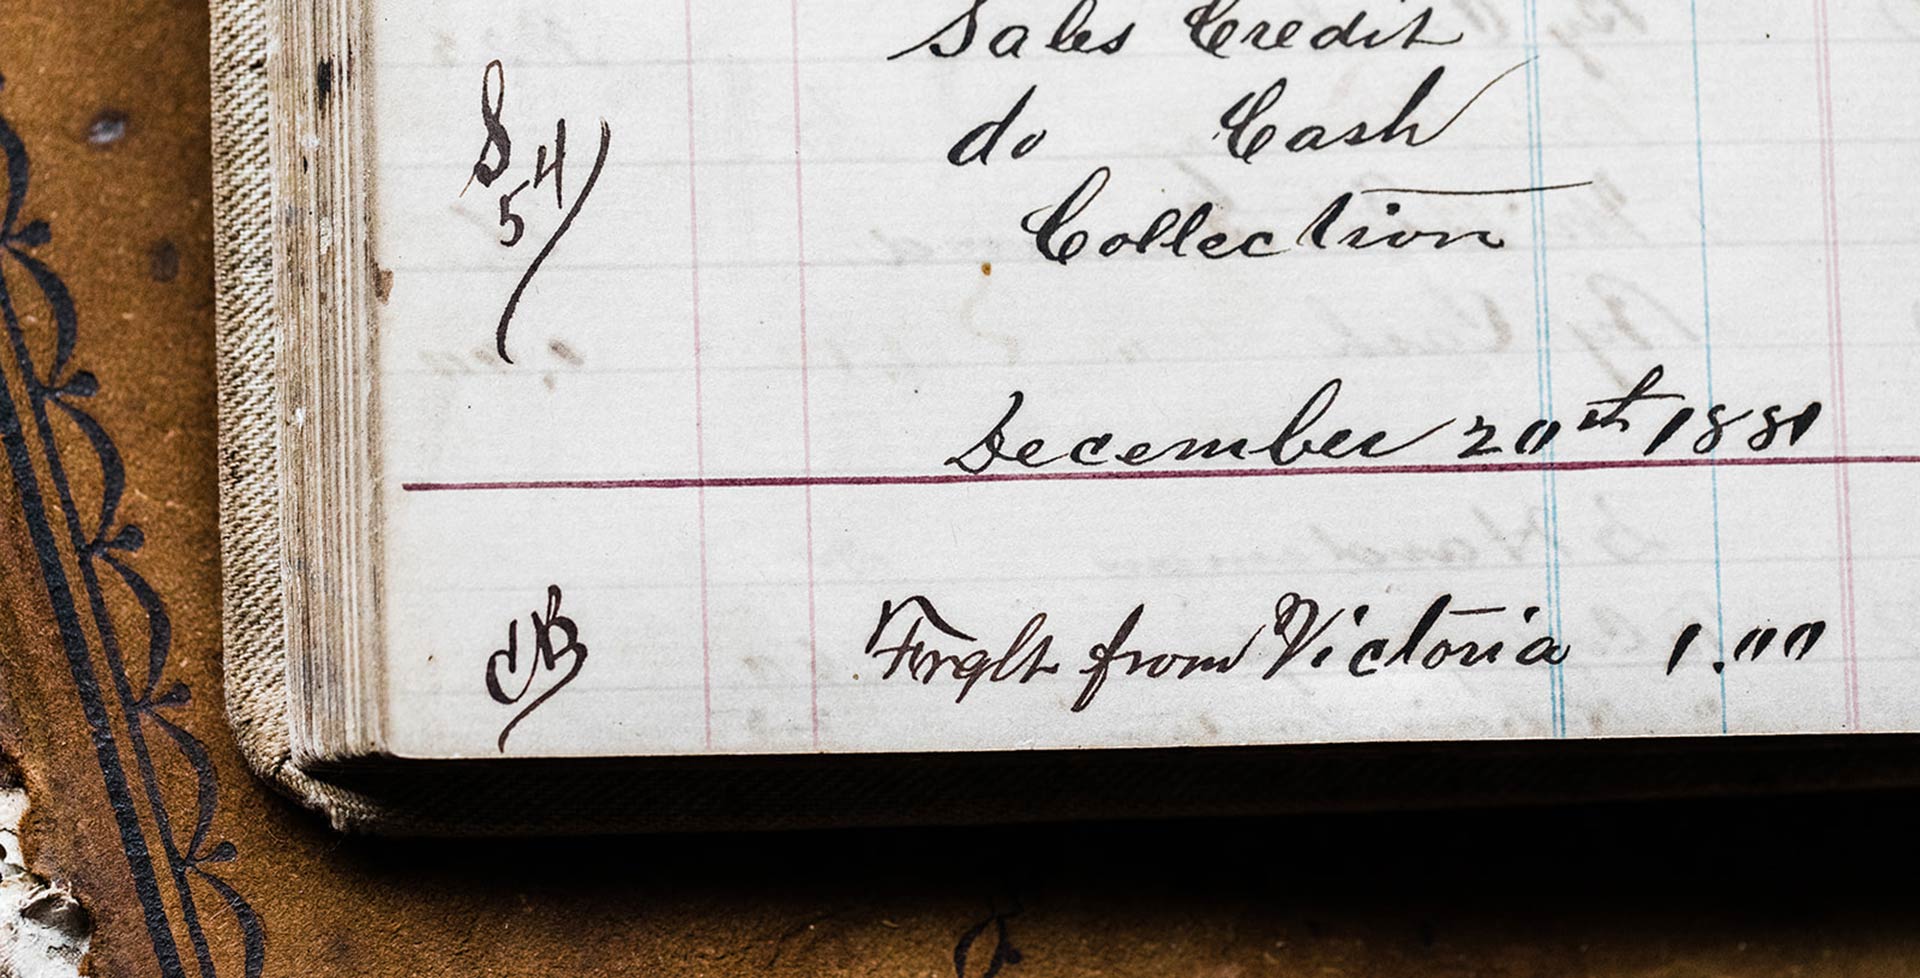 Sales Credit
do Cash
S 54
Collection
December 20th 1881
CB Frght from Victoria 1.00